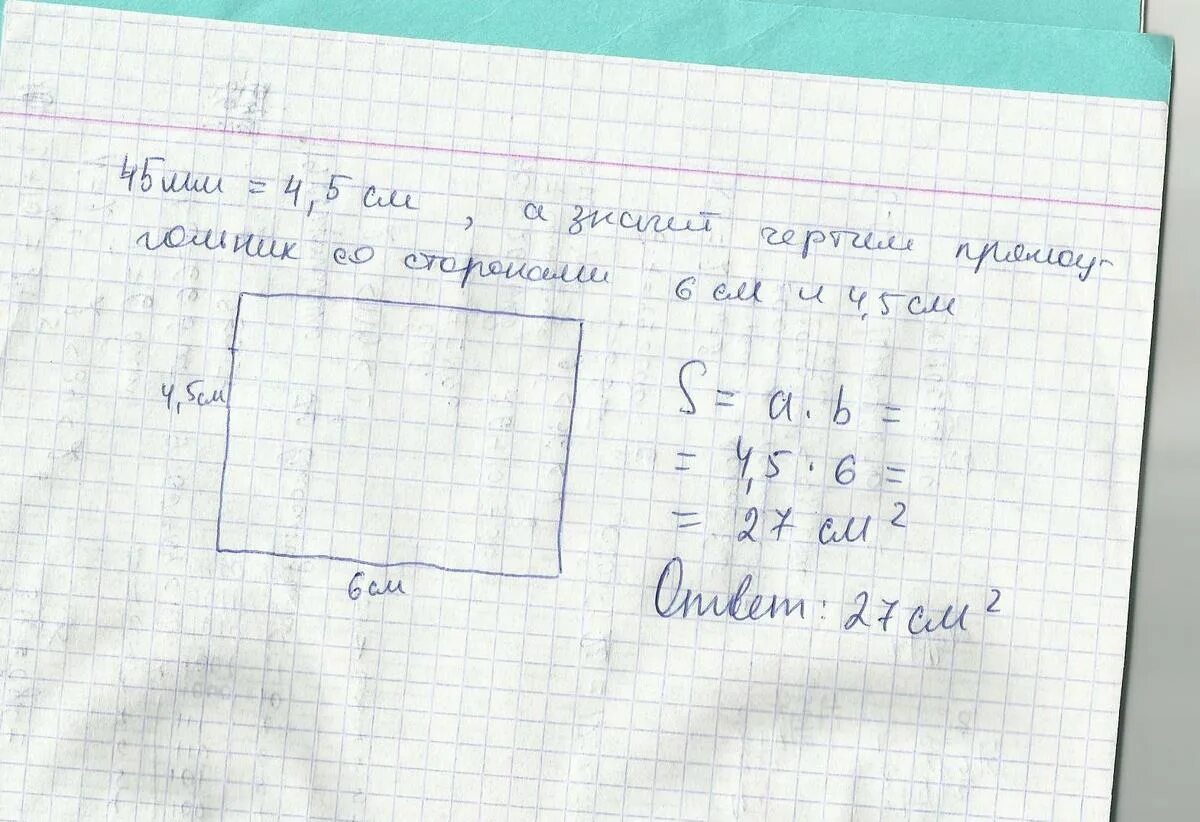 45мм = 4,5 см , а значит чертим прямоу-
гольник со сторонами 6 см и 4,5 см
4,5см
6см
S = a · b =
= 4,5 · 6 =
= 27 см²
Ответ: 27 см²